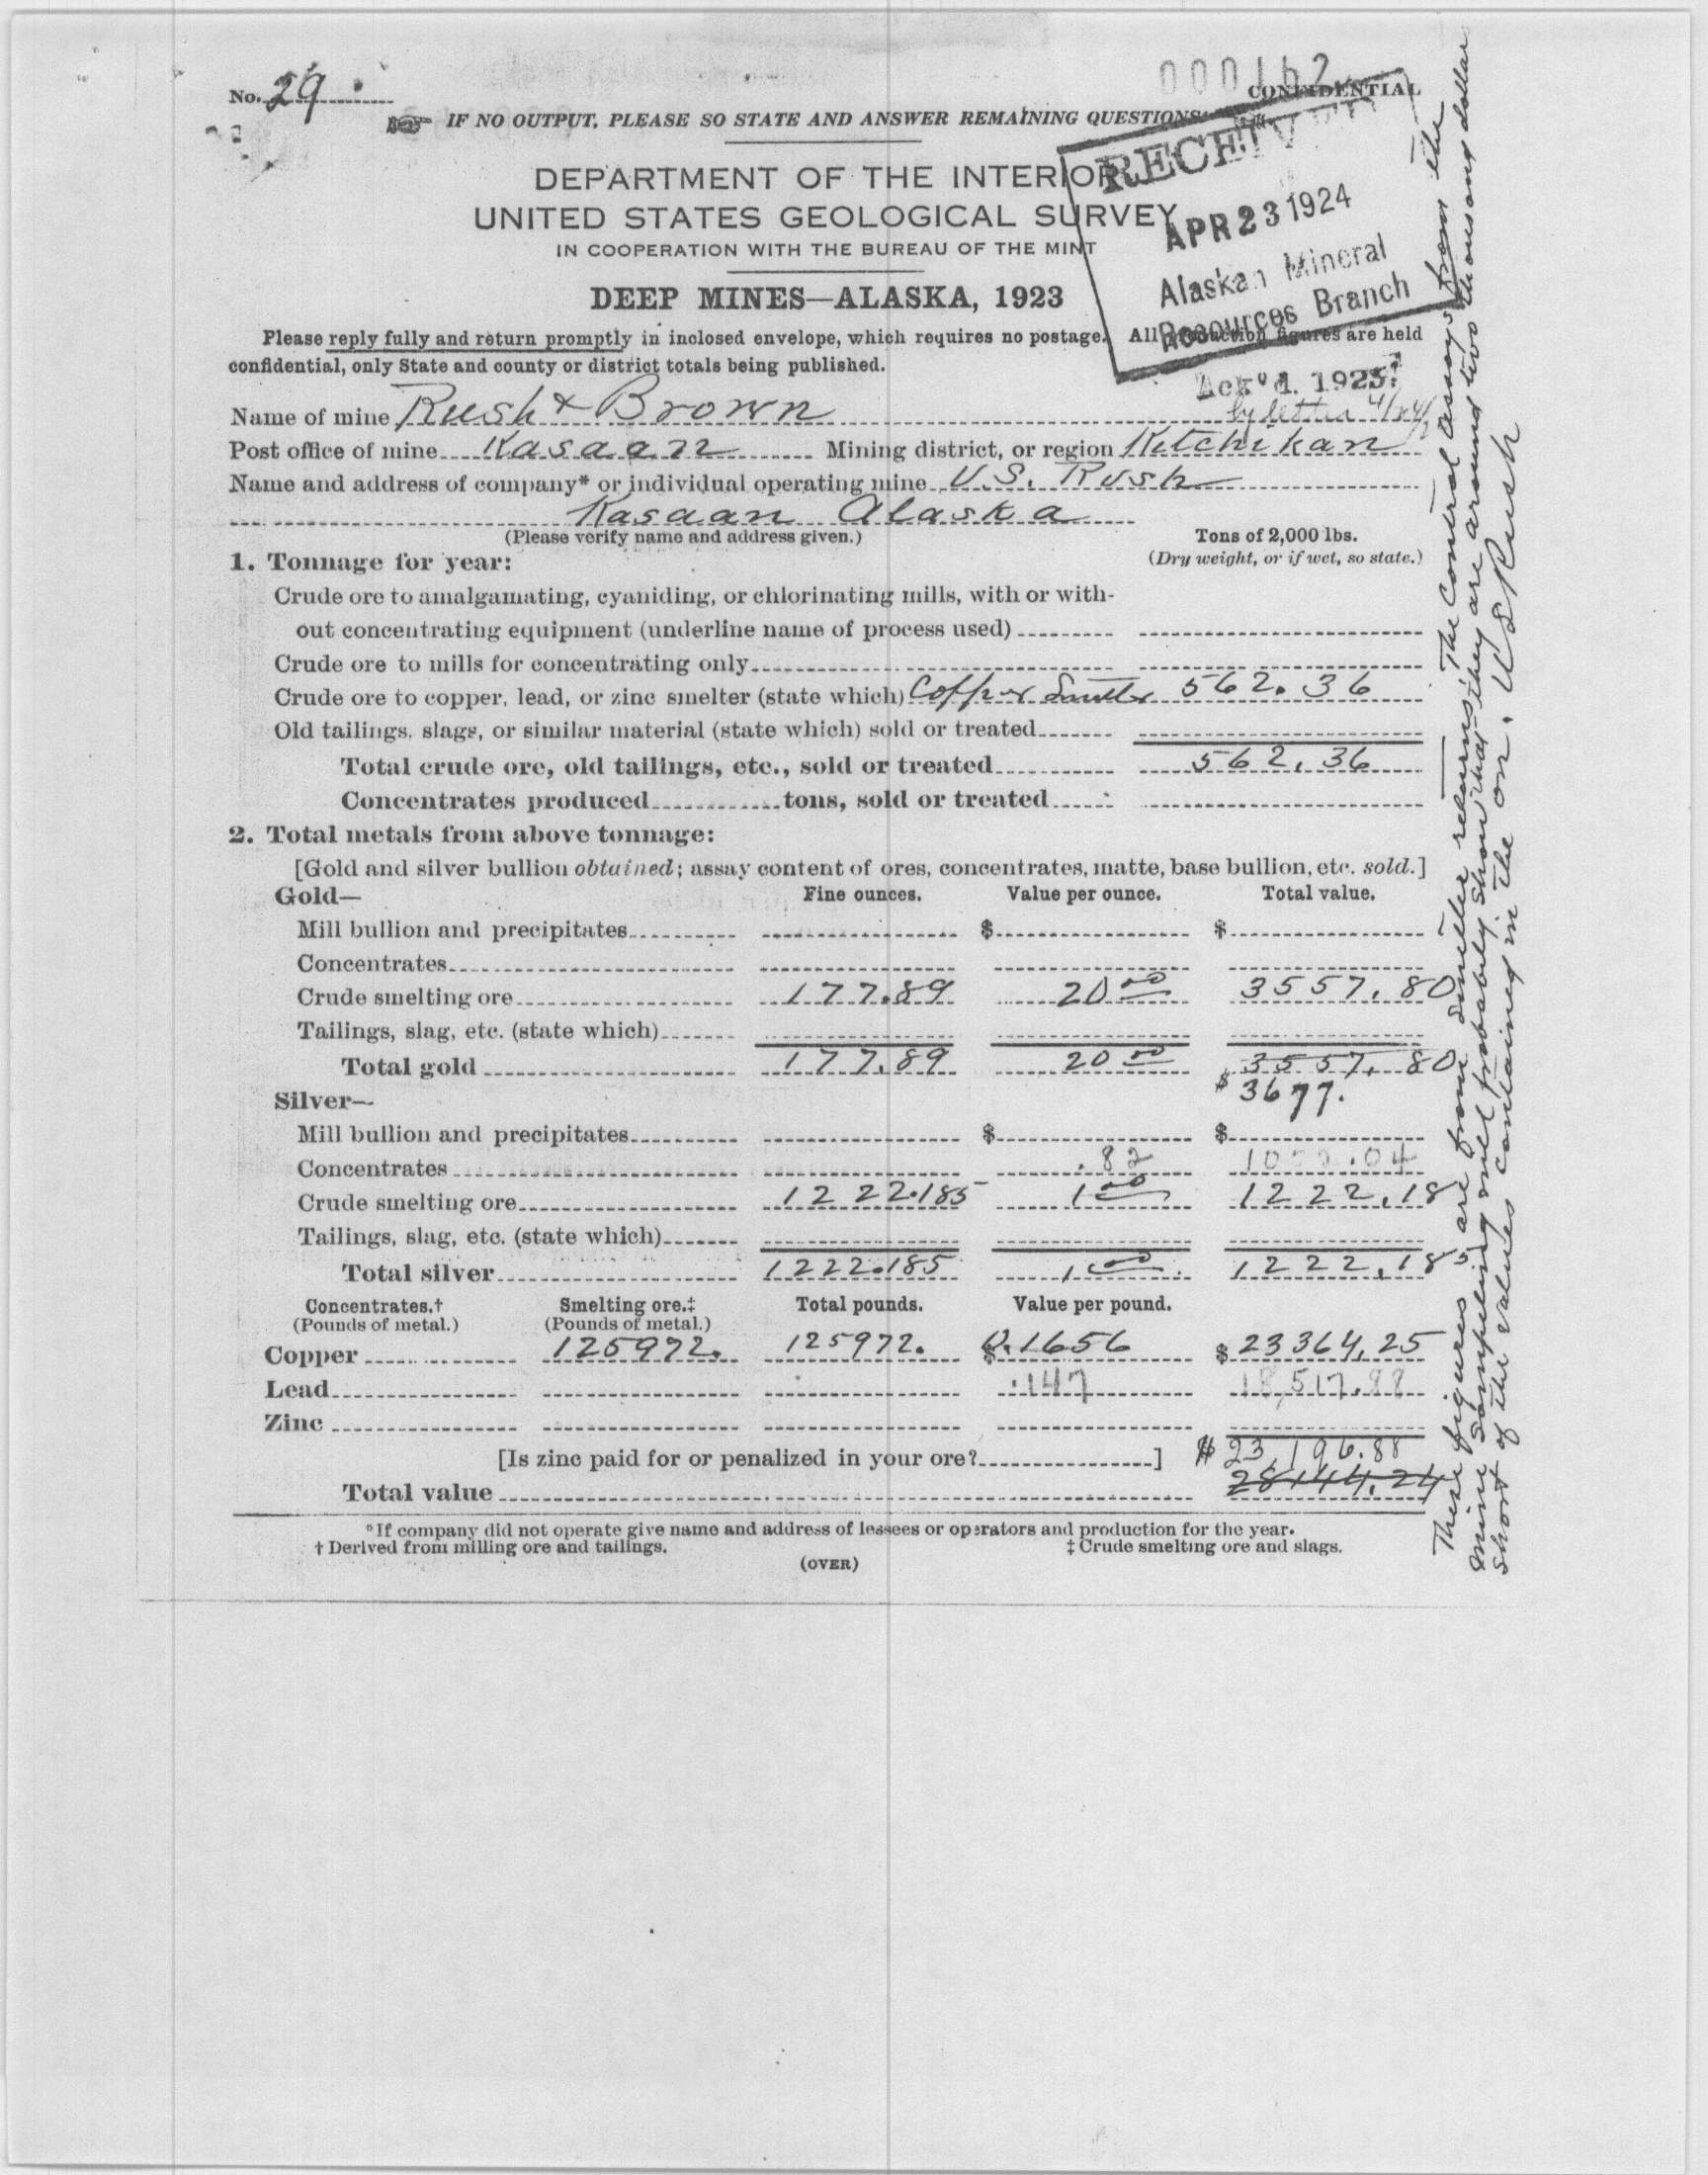 No. 29
CONFIDENTIAL
IF NO OUTPUT, PLEASE SO STATE AND ANSWER REMAINING QUESTIONS
DEPARTMENT OF THE INTERIOR
UNITED STATES GEOLOGICAL SURVEY
IN COOPERATION WITH THE BUREAU OF THE MINT
RECEIVED
APR 23 1924
Alaskan Mineral
Resources Branch
DEEP MINES—ALASKA, 1923
Please reply fully and return promptly in inclosed envelope, which requires no postage. All production figures are held
confidential, only State and county or district totals being published.
Ack'd. 1923.
by letter
Name of mine Rush & Brown
Post office of mine Kasaan Mining district, or region Ketchikan
Name and address of company* or individual operating mine U.S. Rush
Kasaan Alaska
(Please verify name and address given.) Tons of 2,000 lbs.
1. Tonnage for year: (Dry weight, or if wet, so state.)
Crude ore to amalgamating, cyaniding, or chlorinating mills, with or with-
out concentrating equipment (underline name of process used)
Crude ore to mills for concentrating only
Crude ore to copper, lead, or zinc smelter (state which) Copper Smelter 562.36
Old tailings, slags, or similar material (state which) sold or treated
Total crude ore, old tailings, etc., sold or treated 562.36
Concentrates produced tons, sold or treated
2. Total metals from above tonnage:
[Gold and silver bullion obtained; assay content of ores, concentrates, matte, base bullion, etc. sold.]
Gold— Fine ounces. Value per ounce. Total value.
Mill bullion and precipitates $ $
Concentrates
Crude smelting ore 177.89 20 00 3557.80
Tailings, slag, etc. (state which)
Total gold 177.89 20 00 3557.80
$ 3677.
Silver—
Mill bullion and precipitates $ $
Concentrates .82
Crude smelting ore 1222.185 1 00 1222.18
Tailings, slag, etc. (state which)
Total silver 1222.185 1 00 1222.185
Concentrates.† Smelting ore.‡ Total pounds. Value per pound.
(Pounds of metal.) (Pounds of metal.)
Copper 125972. 125972. 0.1656 $ 23364.25
Lead .147 18,517.88
Zinc
[Is zinc paid for or penalized in your ore? ] $ 23,196.88
Total value 28144.24
*If company did not operate give name and address of lessees or operators and production for the year.
† Derived from milling ore and tailings. ‡ Crude smelting ore and slags.
(OVER)
These figures are from smelter returns. The Control assays from the
mine sampling mel probably show that they are around two thousand dollars
short of the values contained in the ore. U S Rush